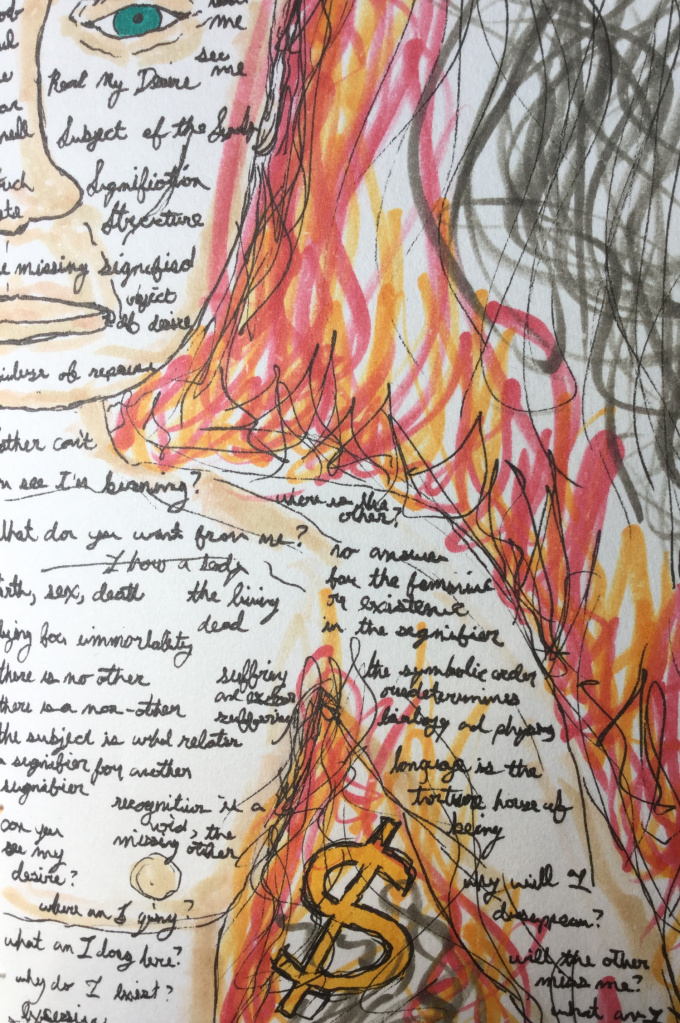 me
see
me
Read My Desire
Subject of the
Signification
Structure
missing signified
object
of desire
of
other can't
see I'm burning?
where is the
other?
What do you want from me?
I have a body
no answer
for the feminine
or existence
in the signifier
sex, death
the living
dead
for immortality
there is no other
there is a non-other
the subject is what relates
a signifier for another
signifier
suffering
suffering
the symbolic order
overdetermines
biology and physics
language is the
torture house of
being
recognition is a
void, the
missing other
can you
see my
desire?
where am I going?
what am I doing here?
why do I exist?
$
why will I
disappear?
will the other
miss me?
what am I